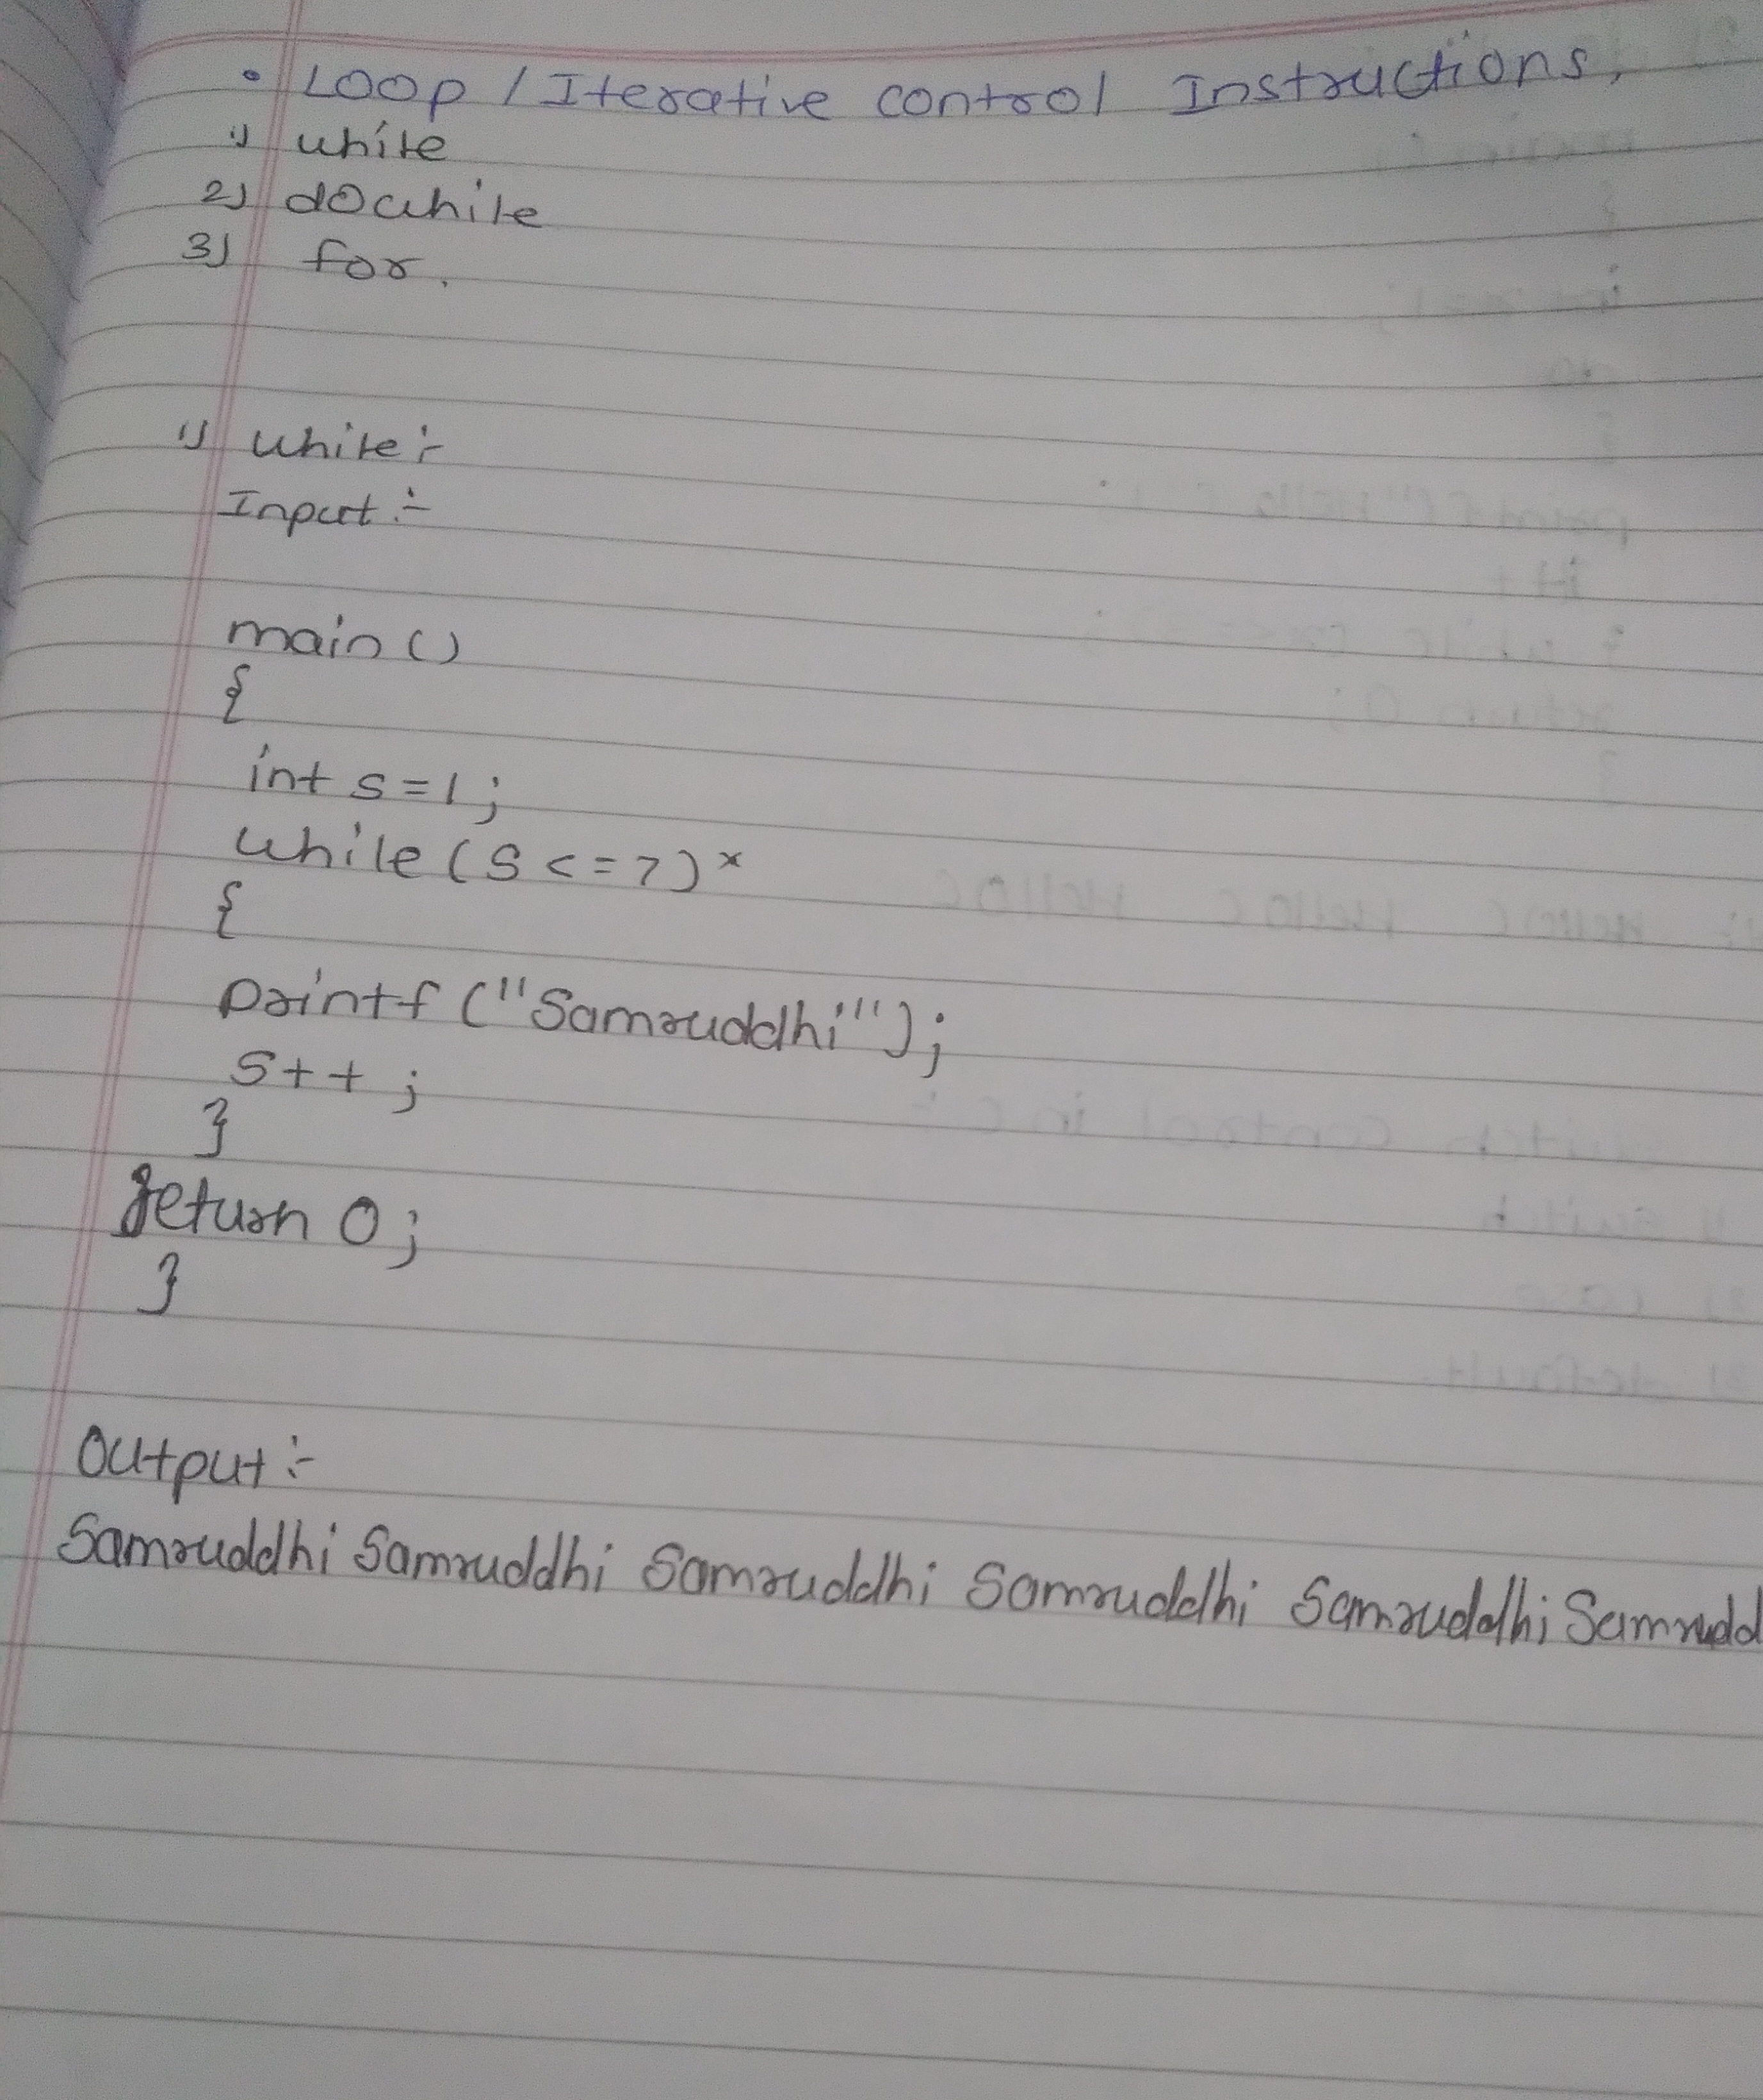 • Loop / Iterative control Instructions.
1) while
2) dowhile
3) for.
1) while :-
Input :-
main ()
{
int s = 1 ;
while ( s < = 7 ) x
{
printf ("Samruddhi");
s + + ;
}
return 0 ;
}
Output :-
Samruddhi Samruddhi Samruddhi Samruddhi Samruddhi Samrudd